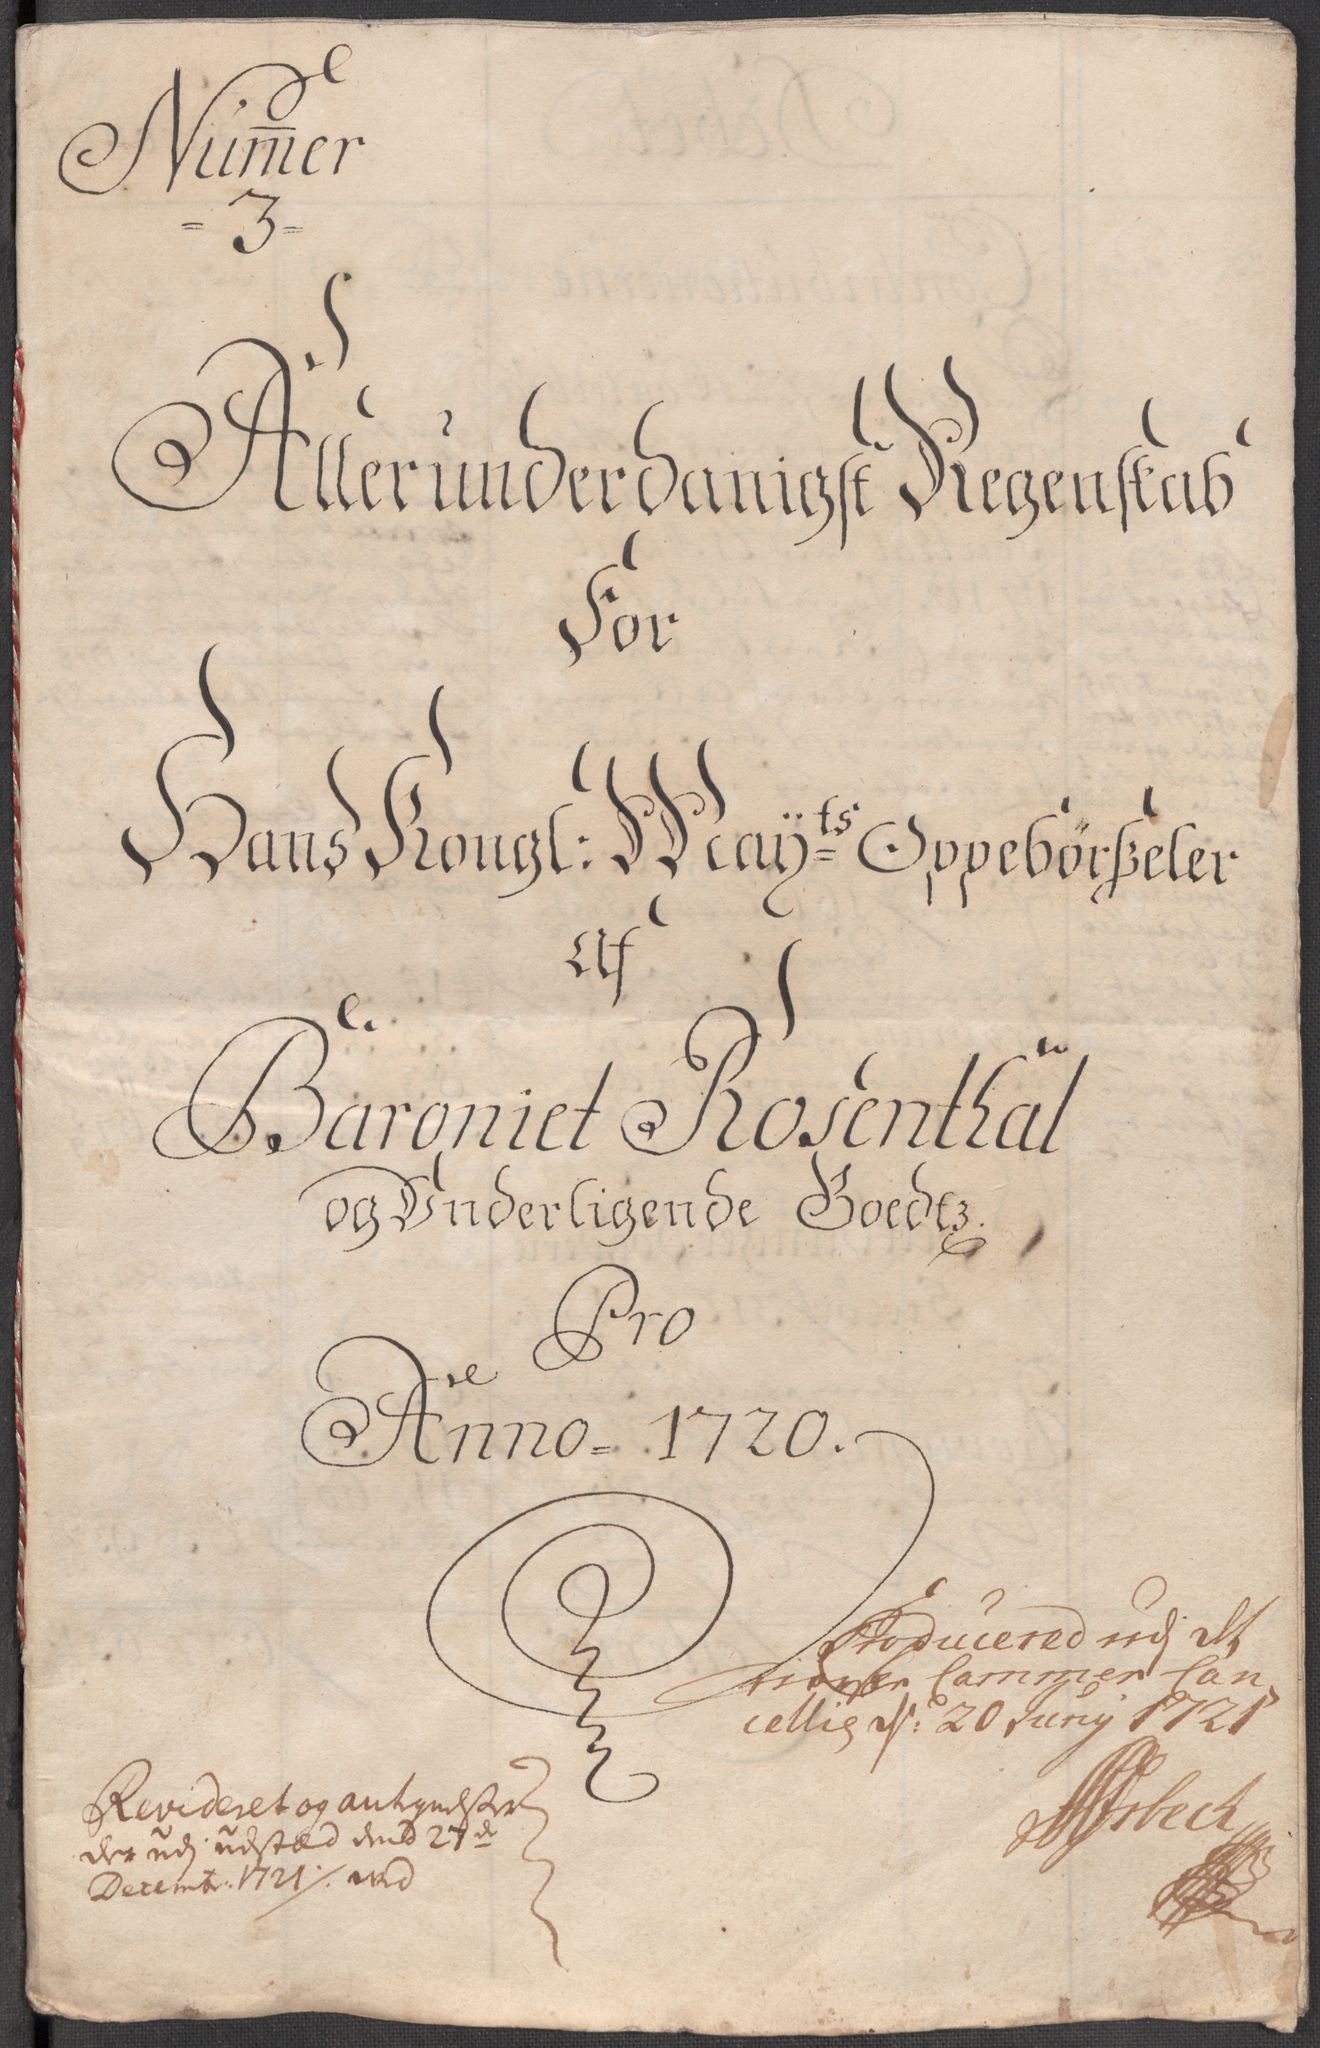 Num̅er
= 3 =
Allerunderdanigst Regenskab
For
Hans Kongl: Maÿ=ts Oppebørßeler
Af
Baroniet Rosenthal
og Underligende Goedtz.
Pro
Anno = 1720.
Producered udj
Cammer Can
cellie d: 20 Junij 1721
Revideret og
der udj udsted den 27de
Decembr: 1721 /. ved